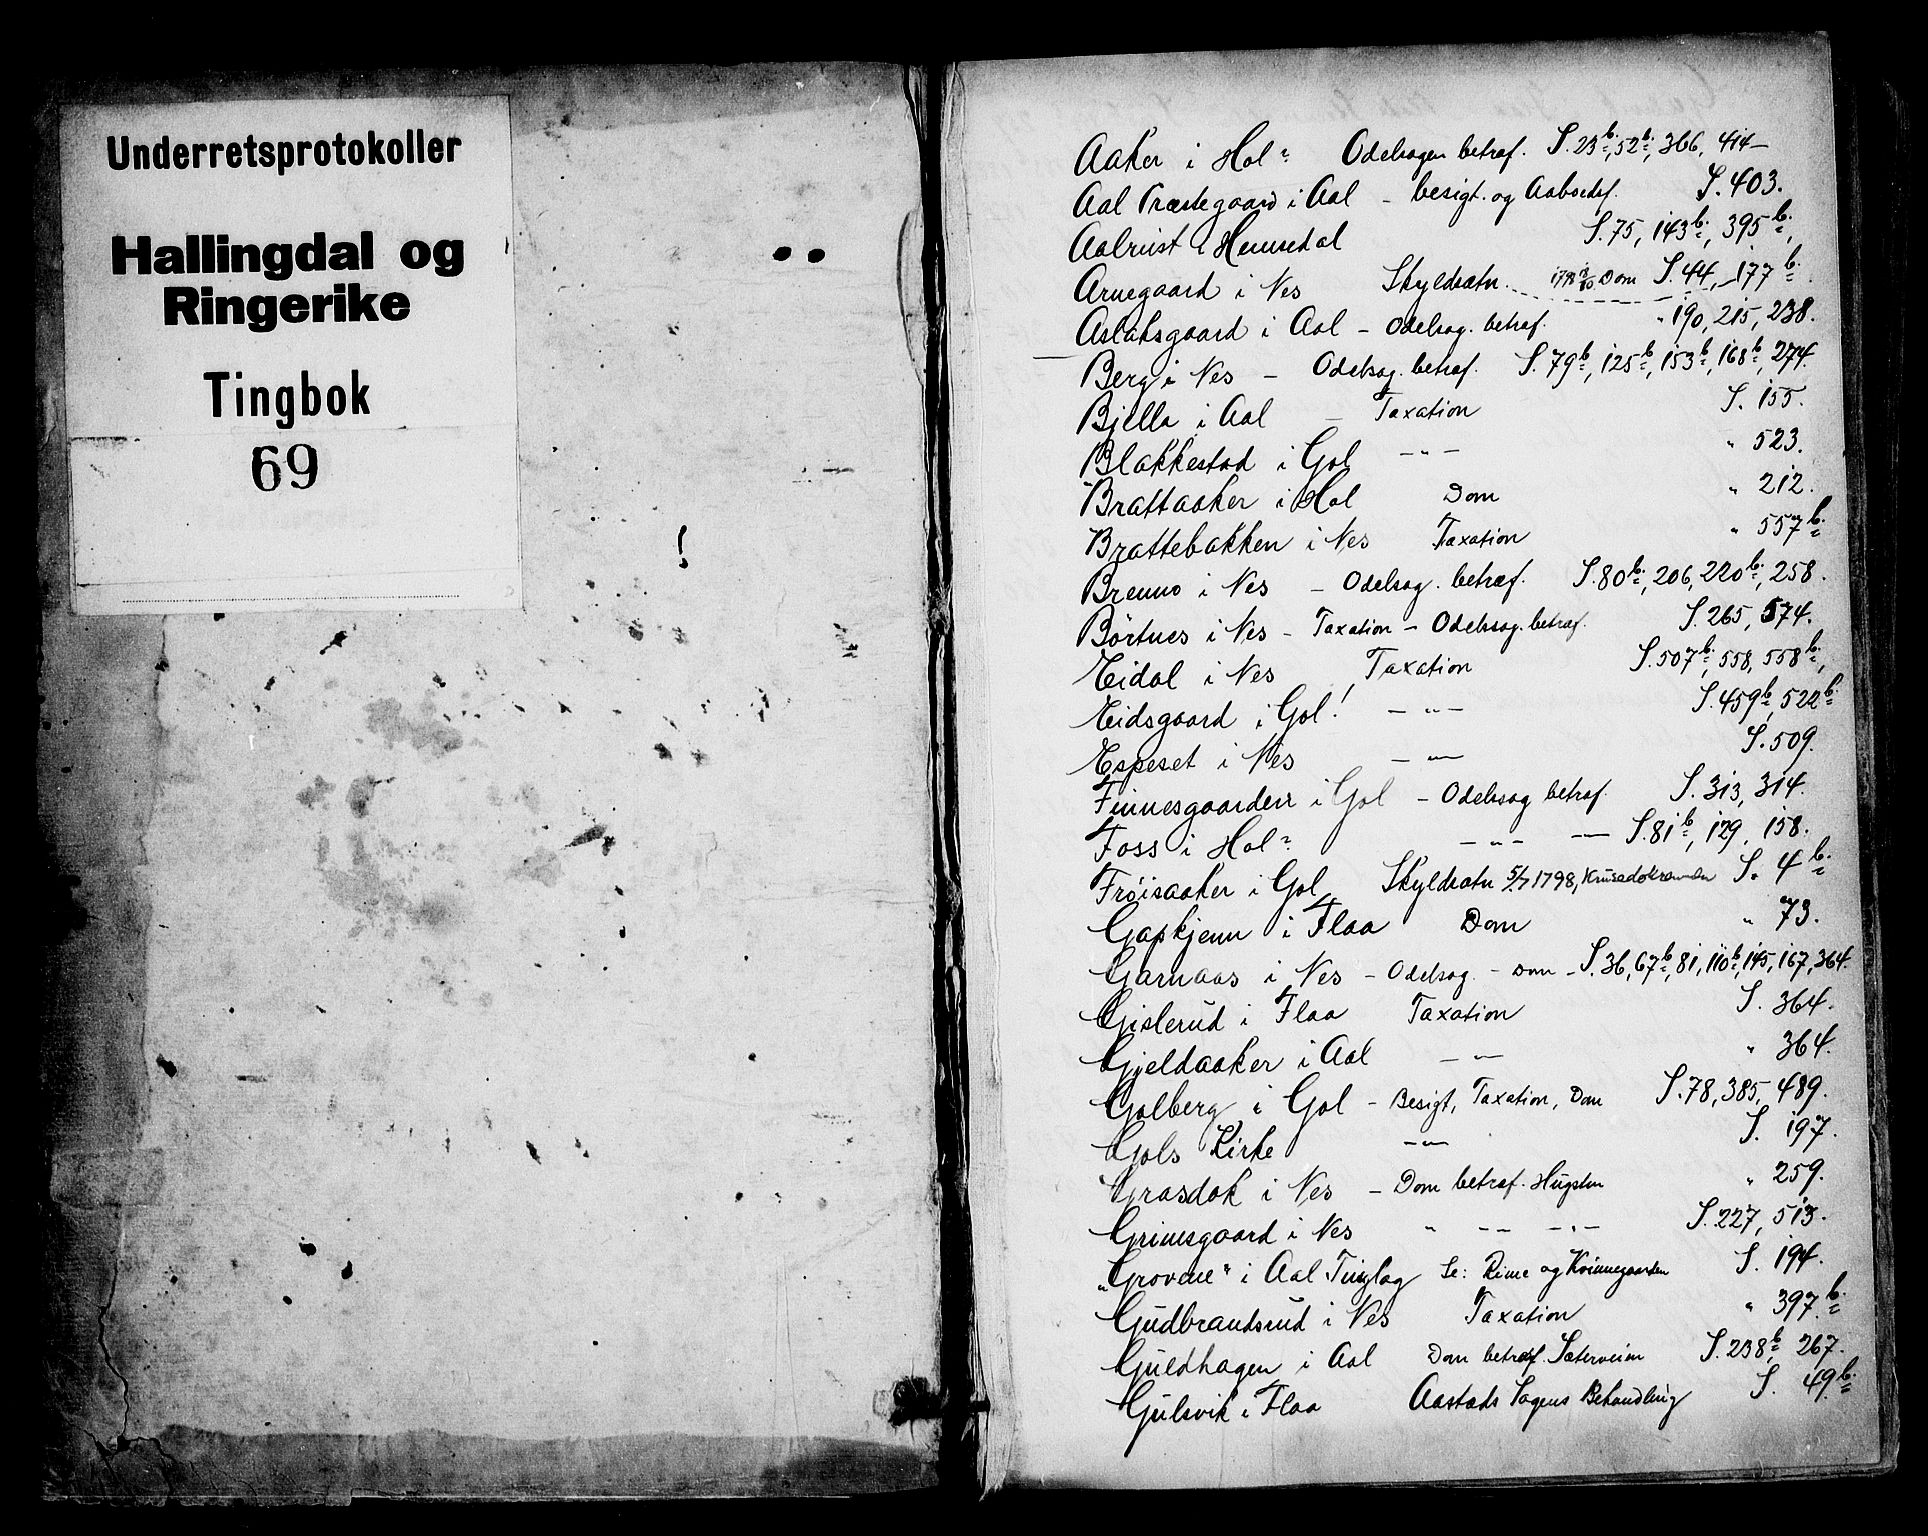 Underretsprotokoller
Hallingdal og
Ringerike
Tingbok
69
Aaker i Hol Odelsagen betræf. S. 23b, 52b, 366, 414
Aal Præstegaard i Aal - besigt. og Aabodsf. S. 403.
Aalrust i Hemsedal S. 75, 143b, 395b,
Arnegaard i Nes Skyldsætn. Dom S. 44, 177b
Aslaksgaard i Aal - Odelsag. betræf. " 190, 215, 238.
Berg i Nes - Odelsag. betræf. S. 79b, 125b, 153b, 168b, 274.
Bjella i Aal - Taxation S. 155.
Blakkestad i Gol - " - " 523.
Brattaaker i Hol Dom " 212.
Brattebakken i Nes Taxation " 557b.
Brenno i Nes - Odelsag. betræf. S. 80b, 206, 220b, 258.
Börtnes i Nes - Taxation - Odelssag. betræf. S. 265, 574.
Eidal i Nes Taxation S. 507b, 558, 558b,
Eidsgaard i Gol! - " - S. 459b, 522b
Espeset i Nes - " - S. 509.
Finnesgaarden i Gol - Odelssag betræf. S. 313, 314.
Foss i Hol - " - — S. 81b, 129, 158.
Fröisaaker i Gol Skyldsætn 5/7 1798, S. 4b.
Gapkjenn i Flaa Dom " 73.
Garnaas i Nes - Odelsag. - Dom - S. 36, 67b, 81, 110b, 145, 167, 364.
Gislerud i Flaa Taxation S. 364.
Gjeldaaker i Aal - " - " 364.
Golberg i Gol - Besigt, Taxation, Dom S. 78, 385, 489.
Gols Kirke - " - S. 197.
Grasdok i Nes - Dom betræf. Hugsten " 259.
Grimsgaard i Nes " - - - " - S. 227, 513.
"Grovene" i Aal Tinglag Se: Rime og Kvinnegaarden S. 194.
Gudbrandsrud i Nes Taxation " 397b.
Guldhagen i Aal Dom betræf. Sæterveien S. 238b, 267.
Gulsvik i Flaa Aastæds Sagens Behandling S. 49b.